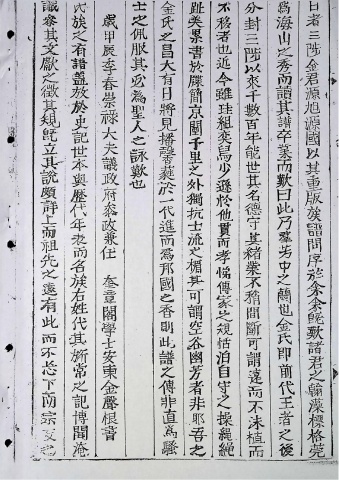 日者三陟金君源旭源國以其重版㷧譜問序於余余旣歎諸君之翰藻標格莞
爲海山之秀而讀其譜卒業而歎曰此乃羣芳中之蘭也金氏卽前代王者之後
分封三陟以來千數百年能世其名德守其緖業不稍間斷可謂遠而不沬植而
不移者也近今雖珪組奕舃少遜於他貫而孝悌傳家之規恬泊自守之操繩繩
趾美累書於牒簡京關千里之外獨抗士流之楣其可謂空谷幽芳者非耶吾知
金氏之昌大有日將見播馨蕤於一代進而爲邦國之香則此譜之傳非直爲騷
士之佩服其必爲聖人之詠歎也
歲甲辰李春崇祿大夫議政府參政兼任 奎章閣學士安東金聲根書
氏族之有譜盖放於史記世本與歷代年表而名族右姓代其旂常之記博聞淹
識參其文獻之徵其規旣立其說頗詳上而祖先之遠有此而不忘下而宗支之